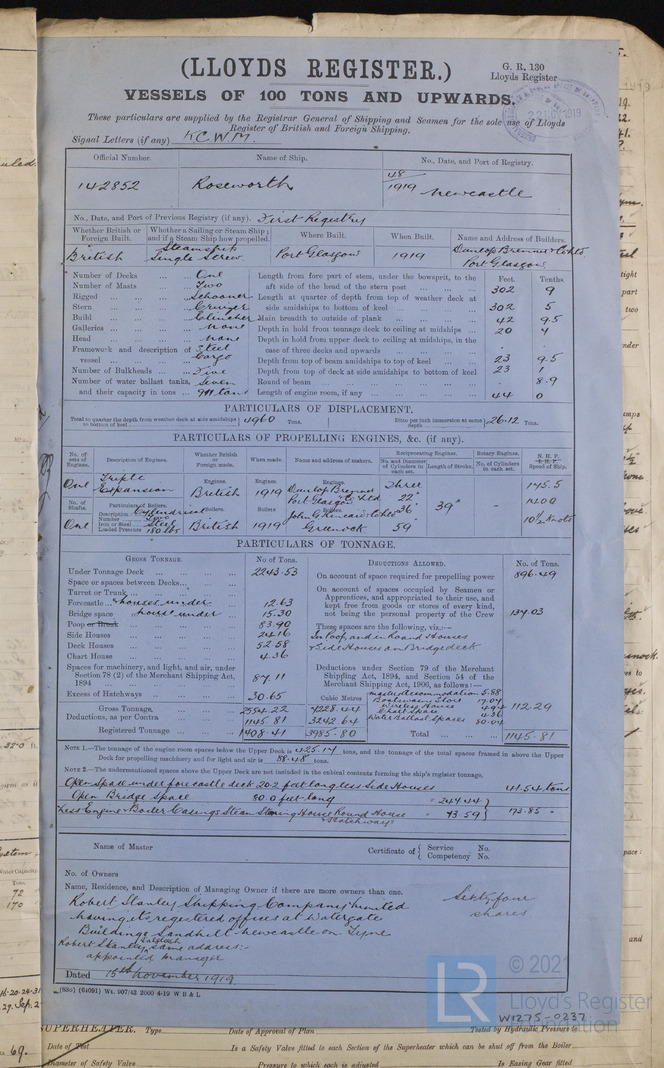 (LLOYDS REGISTER.)
G. R. 130
Lloyds Register
VESSELS OF 100 TONS AND UPWARDS.
These particulars are supplied by the Registrar General of Shipping and Seamen for the sole use of Lloyds
Register of British and Foreign Shipping.
Signal Letters (if any) KCWM.
Official Number. Name of Ship. No., Date, and Port of Registry.
142852 Roseworth 48/1919 Newcastle
No., Date, and Port of Previous Registry (if any). First Registry
Whether British or Foreign Built. Whether a Sailing or Steam Ship; and if a Steam Ship how propelled. Where Built. When Built. Name and Address of Builders.
British Steamship Single Screw Port Glasgow 1919 Dunlop Bremner & Co Ltd Port Glasgow
Number of Decks One
Number of Masts Two
Rigged Schooner
Stern Cruiser
Build Clincher
Galleries None
Head None
Framework and description of vessel Steel Cargo
Number of Bulkheads Five
Number of water ballast tanks, Seven
and their capacity in tons 911 tons
Feet. Tenths.
Length from fore part of stem, under the bowsprit, to the
aft side of the head of the stern post 302 9
Length at quarter of depth from top of weather deck at
side amidships to bottom of keel 302 5
Main breadth to outside of plank 42 9.5
Depth in hold from tonnage deck to ceiling at midships 20 4
Depth in hold from upper deck to ceiling at midships, in the
case of three decks and upwards
Depth from top of beam amidships to top of keel 23 9.5
Depth from top of deck at side amidships to bottom of keel 23 1
Round of beam 8.9
Length of engine room, if any 44 0
PARTICULARS OF DISPLACEMENT.
Total to quarter the depth from weather deck at side amidships to bottom of keel 4960 Tons. Ditto per inch immersion at same depth 26.12 Tons.
PARTICULARS OF PROPELLING ENGINES, &c. (if any).
No. of sets of Engines. Description of Engines. Whether British or Foreign made. When made. Name and address of makers. Reciprocating Engines. Rotary Engines. N.H.P.
No. and Diameter of Cylinders in each set. Length of Stroke. No. of Cylinders in each set. Speed of Ship.
One Triple Expansion Engines. British Engines. 1919 Engines. Dunlop Bremner & Co Ltd Port Glasgow Three 22" 36" 59" 39" 145.5
No. of Shafts. Particulars of Boilers. Boilers Boilers Boilers.
Description Cylindrical
Number
Iron or Steel Steel
Loaded Pressure 180 lbs
One British 1919 John G Kincaid & Co Ltd Greenock 10½ Knots
PARTICULARS OF TONNAGE.
GROSS TONNAGE. No. of Tons.
Under Tonnage Deck 2243.53
Space or spaces between Decks
Turret or Trunk
Forecastle houses under 12.63
Bridge space house under 15.30
Poop or Break 83.90
Side Houses 24.16
Deck Houses 52.58
Chart House 4.36
Spaces for machinery, and light, and air, under
Section 78 (2) of the Merchant Shipping Act,
1894 87.11
Excess of Hatchways 30.65
Cubic Metres
Gross Tonnage, 2554.22 7228.44
Deductions, as per Contra 1145.81 3242.64
Registered Tonnage 1408.41 3985.80
DEDUCTIONS ALLOWED. No. of Tons.
On account of space required for propelling power 896.49
On account of spaces occupied by Seamen or
Apprentices, and appropriated to their use, and
kept free from goods or stores of every kind,
not being the personal property of the Crew 137.03
These spaces are the following, viz.:—
In Poop, and in Round Houses
& Side Houses on Bridge deck
Deductions under Section 79 of the Merchant
Shipping Act, 1894, and Section 54 of the
Merchant Shipping Act, 1906, as follows:—
Master's accommodation 5.88
Boatswains Store 17.07
Wireless House 4.94
Chart Space 4.36
Water Ballast Spaces 80.04
112.29
Total 1145.81
NOTE 1.—The tonnage of the engine room spaces below the Upper Deck is 425.17 tons, and the tonnage of the total spaces framed in above the Upper
Deck for propelling machinery and for light and air is 88.48 tons.
NOTE 2.—The undermentioned spaces above the Upper Deck are not included in the cubical contents forming the ship's register tonnage.
Open Space under forecastle deck 20.2 feet long less Side Houses 41.54 tons
Open Bridge Space 80.0 feet long 247.44
Less Engine & Boiler Casings Steam Steering House Round House & Hatchways 73.59 173.85
Name of Master
Certificate of Service No.
Competency No.
No. of Owners
Name, Residence, and Description of Managing Owner if there are more owners than one.
Robert Stanley Shipping Company Limited Sixty four
having its registered offices at Watergate shares
Buildings Sandhill Newcastle on Tyne
Robert Stanley Dalgleish same address:-
appointed manager
Dated 15th November 1919
(880) (64091) Wt. 907/42 2000 4-19 W B & L
© 2021
LR
Lloyd's Register
Foundation
W1275-0337
SUPERHEATER. Type Date of Approval of Plan Tested by Hydraulic Pressure to
Date of Test Is a Safety Valve fitted to each Section of the Superheater which can be shut off from the Boiler
Diameter of Safety Valve Pressure to which each is adjusted Is Easing Gear fitted